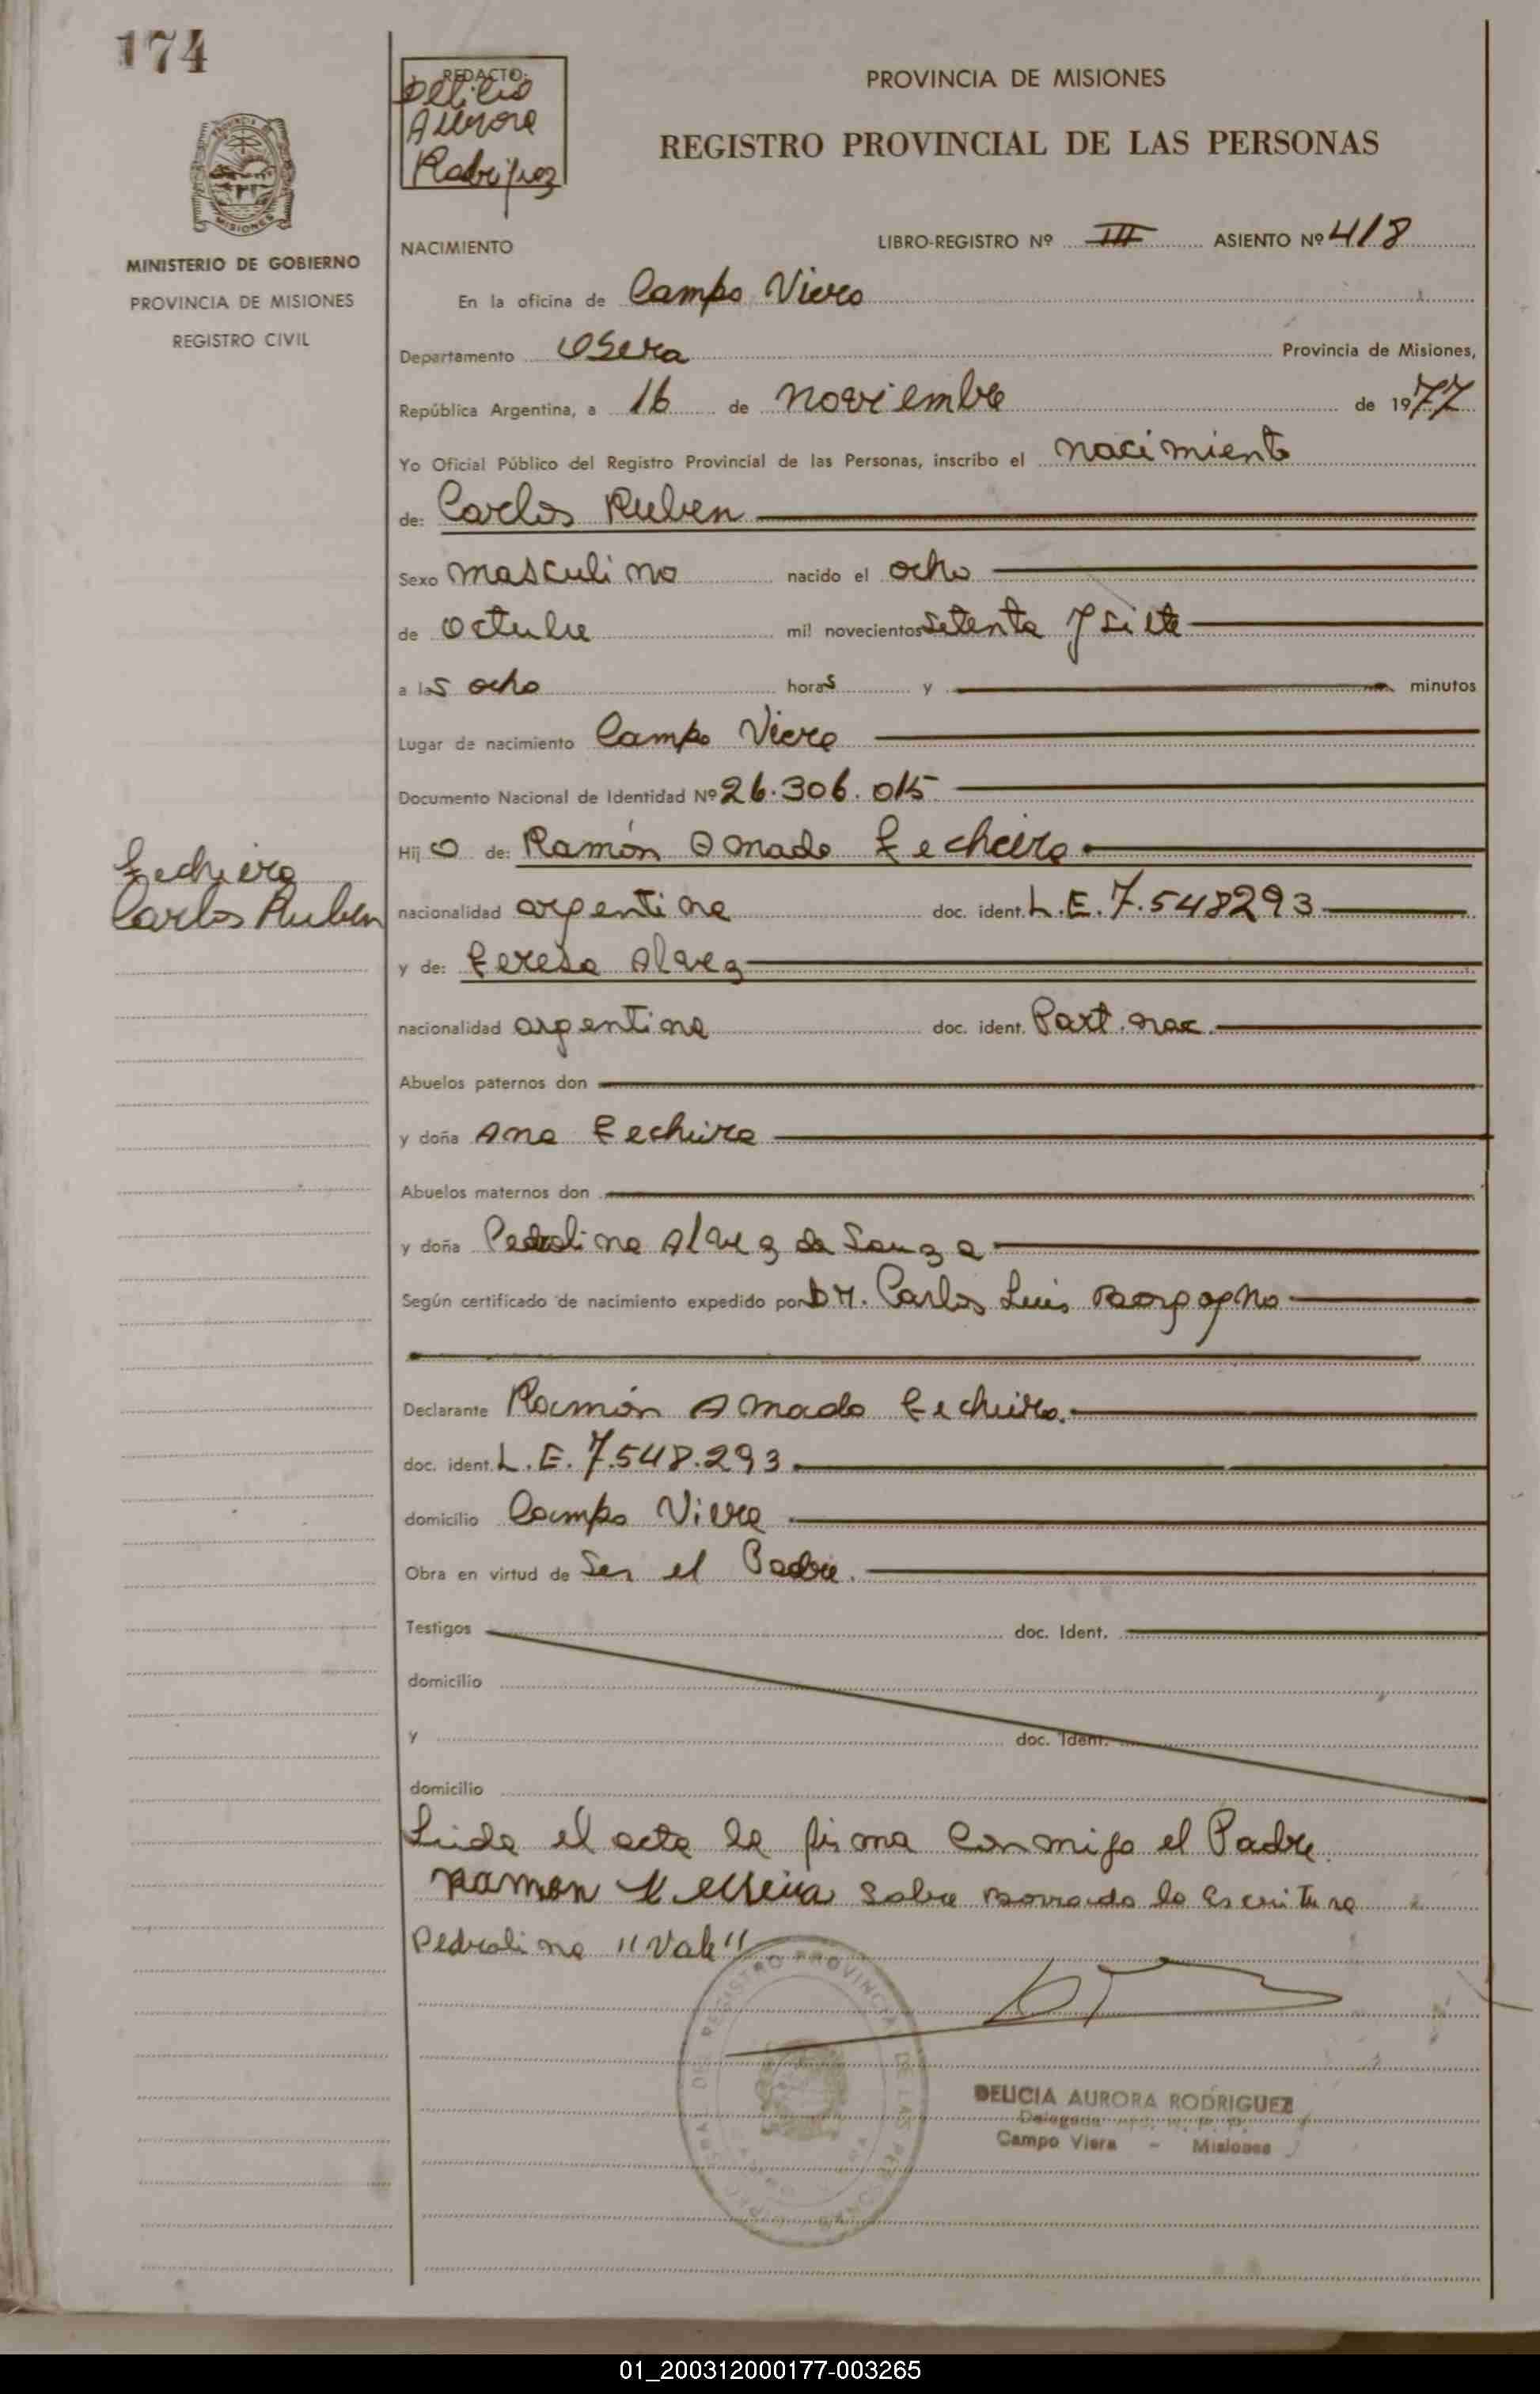 174
REDACTO:
Delicia
Aurora
Rodriguez
PROVINCIA DE MISIONES
REGISTRO PROVINCIAL DE LAS PERSONAS
MISIONES
MINISTERIO DE GOBIERNO
PROVINCIA DE MISIONES
REGISTRO CIVIL
NACIMIENTO
LIBRO-REGISTRO Nº III ASIENTO Nº 418
En la oficina de Campo Viera
Departamento Oberá Provincia de Misiones,
República Argentina, a 16 de noviembre de 1977
Yo Oficial Público del Registro Provincial de las Personas, inscribo el nacimiento
de: Carlos Ruben
Sexo masculino nacido el ocho
de octubre mil novecientos setenta y siete
a las ocho horas y minutos
Lugar de nacimiento Campo Viera
Documento Nacional de Identidad Nº 26.306.015
Hijo de: Ramón Amado Techeira
Techiera
Carlos Ruben
nacionalidad argentina doc. ident. L.E. 7.548293
y de: Teresa Alvez
nacionalidad argentina doc. ident. Part. nac.
Abuelos paternos don
y doña Ana Techeira
Abuelos maternos don
y doña Pedrolina Alvez da Souza
Según certificado de nacimiento expedido por Dr. Carlos Luis Borgogno
Declarante Ramón Amado Techeira.
doc. ident. L.E. 7.548.293
domicilio Campo Viera
Obra en virtud de Ser el Padre.
Testigos doc. Ident.
domicilio
y doc. Ident.
domicilio
Leida el acta la firma conmigo el Padre
Ramon sobre borrado la escritura
Pedrolina "Vale"
REGISTRO PROVINCIAL DE LAS PERSONAS
DELICIA AURORA RODRIGUEZ
Delegada
Campo Viera - Misiones
01_200312000177-003265